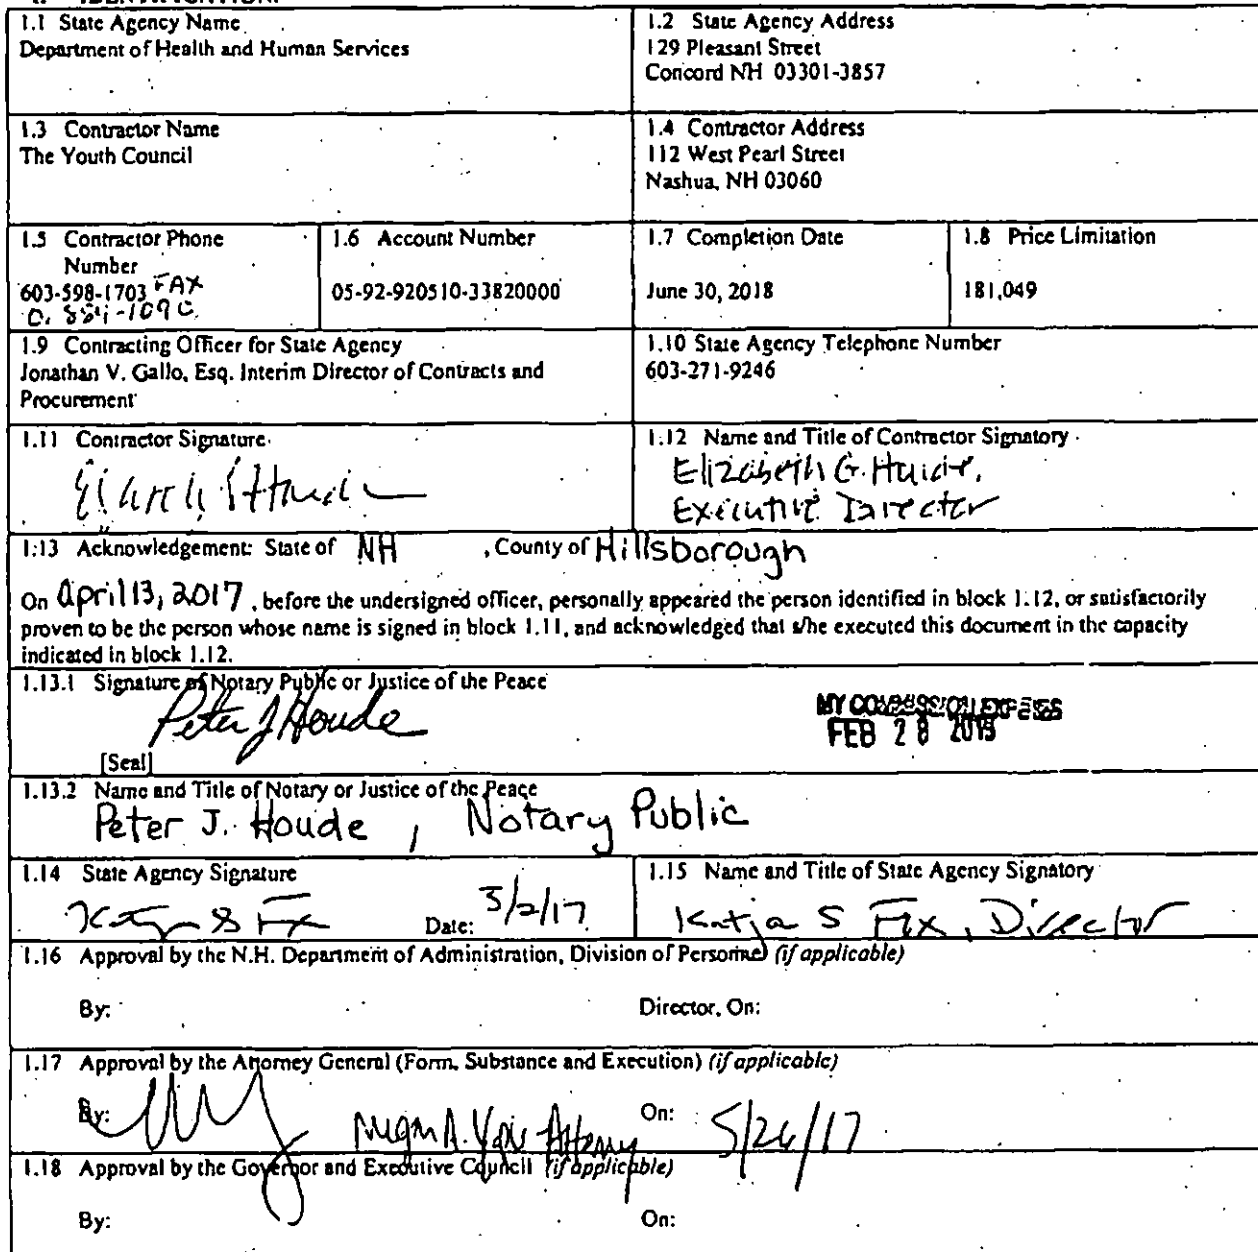 1.1 State Agency Name
Department of Health and Human Services
1.2 State Agency Address
129 Pleasant Street
Concord NH 03301-3857
1.3 Contractor Name
The Youth Council
1.4 Contractor Address
112 West Pearl Street
Nashua, NH 03060
1.5 Contractor Phone
Number
603-598-1703 FAX
1.6 Account Number
05-92-920510-33820000
1.7 Completion Date
June 30, 2018
1.8 Price Limitation
181,049
1.9 Contracting Officer for State Agency
Jonathan V. Gallo, Esq. Interim Director of Contracts and
Procurement
1.10 State Agency Telephone Number
603-271-9246
1.11 Contractor Signature
1.12 Name and Title of Contractor Signatory
Elizabeth G. Houde,
Executive Director
1.13 Acknowledgement: State of NH , County of Hillsborough
On April 13, 2017, before the undersigned officer, personally appeared the person identified in block 1.12, or satisfactorily
proven to be the person whose name is signed in block 1.11, and acknowledged that s/he executed this document in the capacity
indicated in block 1.12.
1.13.1 Signature of Notary Public or Justice of the Peace
Peter J Houde
MY COMMISSION EXPIRES
FEB 28 2019
[Seal]
1.13.2 Name and Title of Notary or Justice of the Peace
Peter J. Houde, Notary Public
1.14 State Agency Signature
Date: 5/2/17
1.15 Name and Title of State Agency Signatory
Katja S Fox, Director
1.16 Approval by the N.H. Department of Administration, Division of Personnel (if applicable)
By:
Director, On:
1.17 Approval by the Attorney General (Form, Substance and Execution) (if applicable)
By: Attorney
On: 5/26/17
1.18 Approval by the Governor and Executive Council (if applicable)
By:
On: